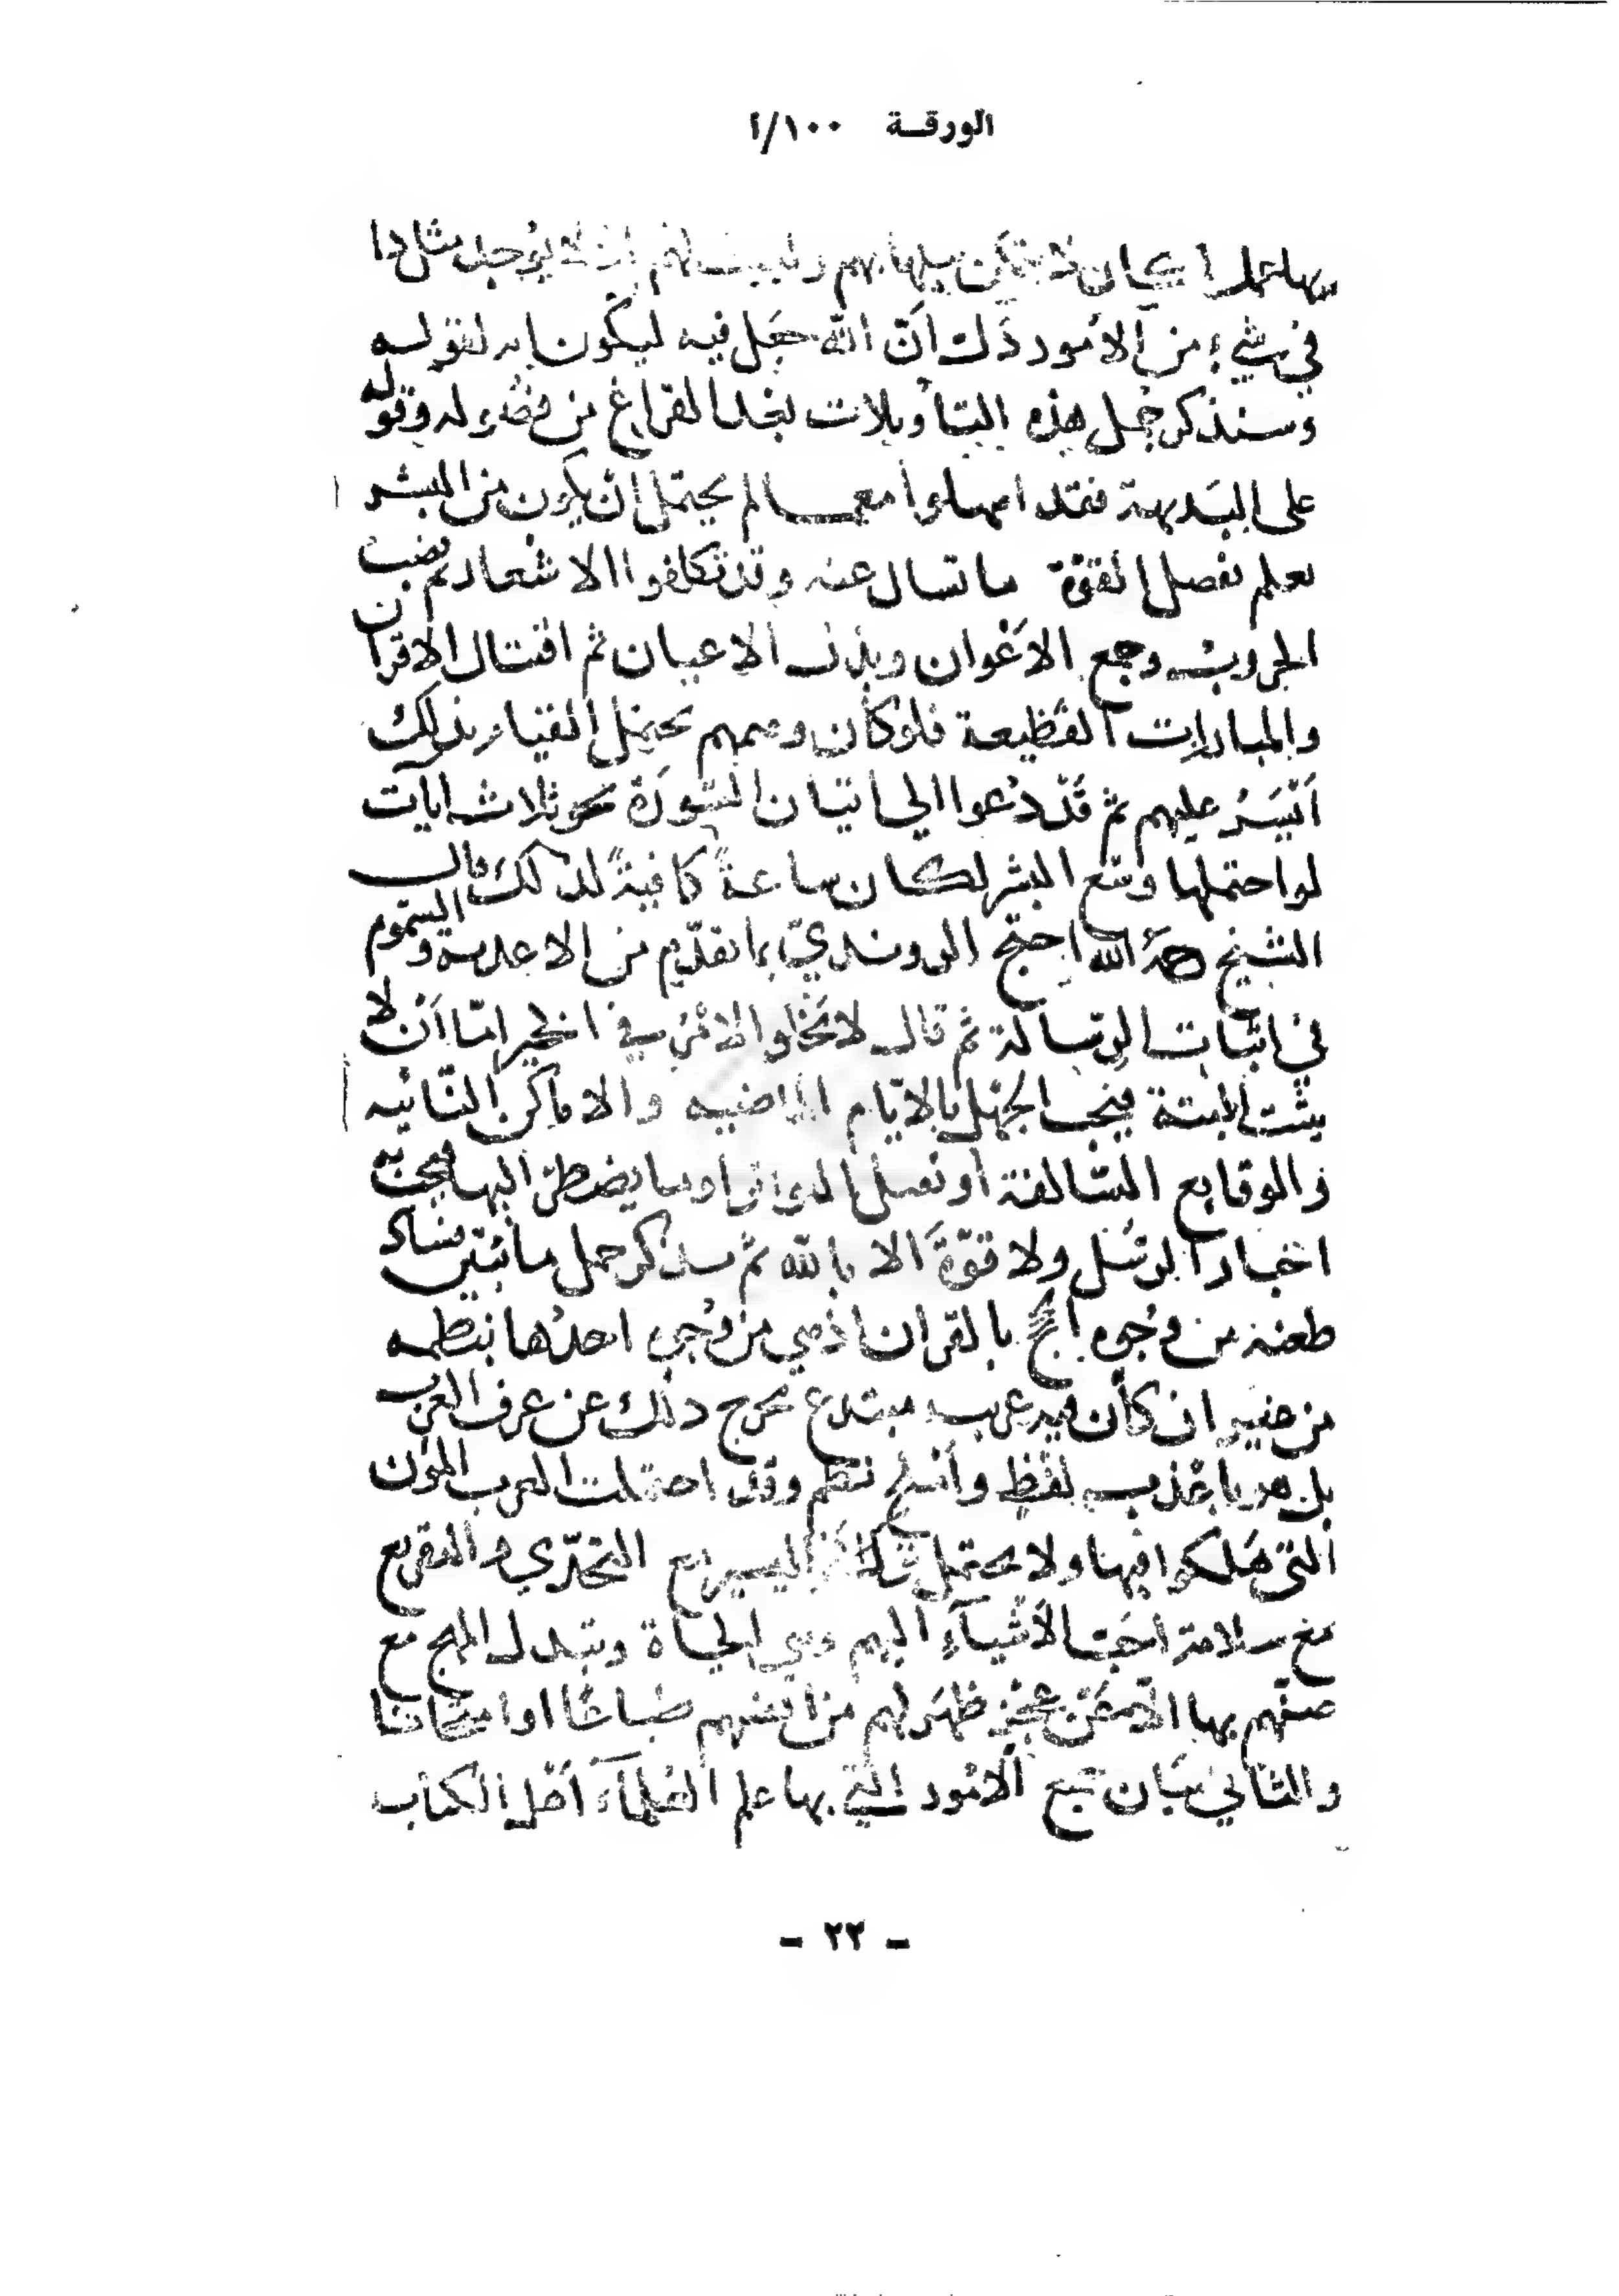 الورقة ١٠٠/أ
يوجد مثل ذا
في شيء من الأمور دَل أنّ الله جعل فيه ليكون اية لقوله
وسنذكر جمل هذه التأويلات بعد الفراغ من فصوله وقوله
على البديهة فقد امهلوا مع ما لم يحتمل ان يكون من البشر
نعلم بفصل القوّة ما تسال عنه وقد تكلفوا الاشعار ثم نصب
الحروب وجمع الاعوان وبذل الاعيان ثم اقتتال الاقران
والمبارزات الفظيعة فلو كان وسعهم يحتمل القيام بذلك
أيسَرُ عليهم ثم قد دُعوا الى اتيان السورة نحو ثلاث ايات
لو احتملها وسع البشر لكان ساعةً كافيةً لذلك قال
الشيخ رحمه الله احتج الروندي بما تقدّم من الاغدية والسموم
في اثبات الرسالة ثم قال لا يخلو الامر في الخبر امّا أن لا
يثبت البتة فيجب الجهل بالايّام الماضيه والاماكن النّائيه
والوقايع السّالفة او نقبل المتواتر وما يضطر اليها فيجب به
اخبار الرسل ولا قوّة الا بالله ثم سنذكر جمل ما نبيّن فساد
طعنه من وجوه احتج بالقران اذ هي من وجوه احدُها بنظمه
من غير ان كان فيه غريب مبتدع يخرج ذلك عن عرف العرب
بل هو باعذب لفظٍ وأملح نظم وقد احتملت العرب المؤن
التي هلكوا فيها ولا يحتمل ترك اليسير مع التحدّي والتقريع
مع سلامة احب الأشياء اليهم وهي الحياة وبتبدل المهج مع
ضنّهم بها الا عن عجز ظهَر لهم من انفسهم طباعًا او امتحانا
والثاني بيان جميع الأمور التي بها علم العُلماء أهل الكتاب
- ٢٣ -